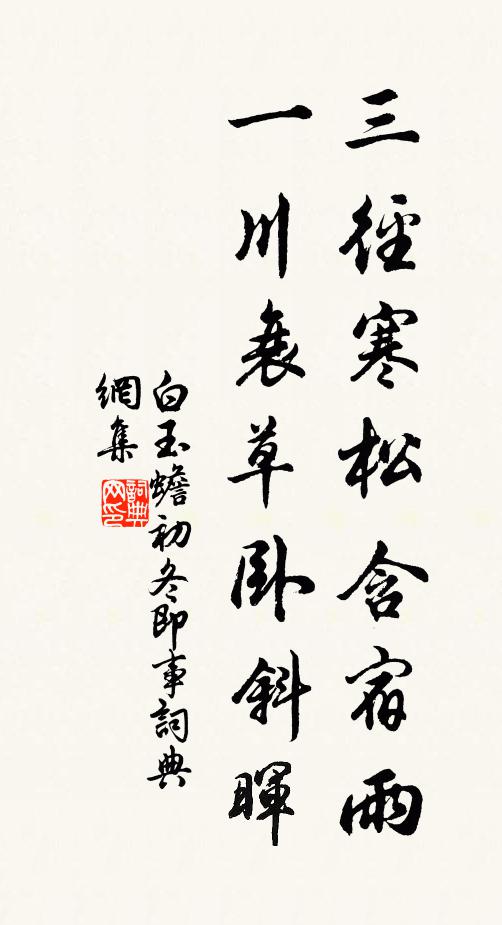 三徑寒松含宿雨
一川衰草臥斜暉
白玉蟾初冬即事詞典
網集
詞典網印